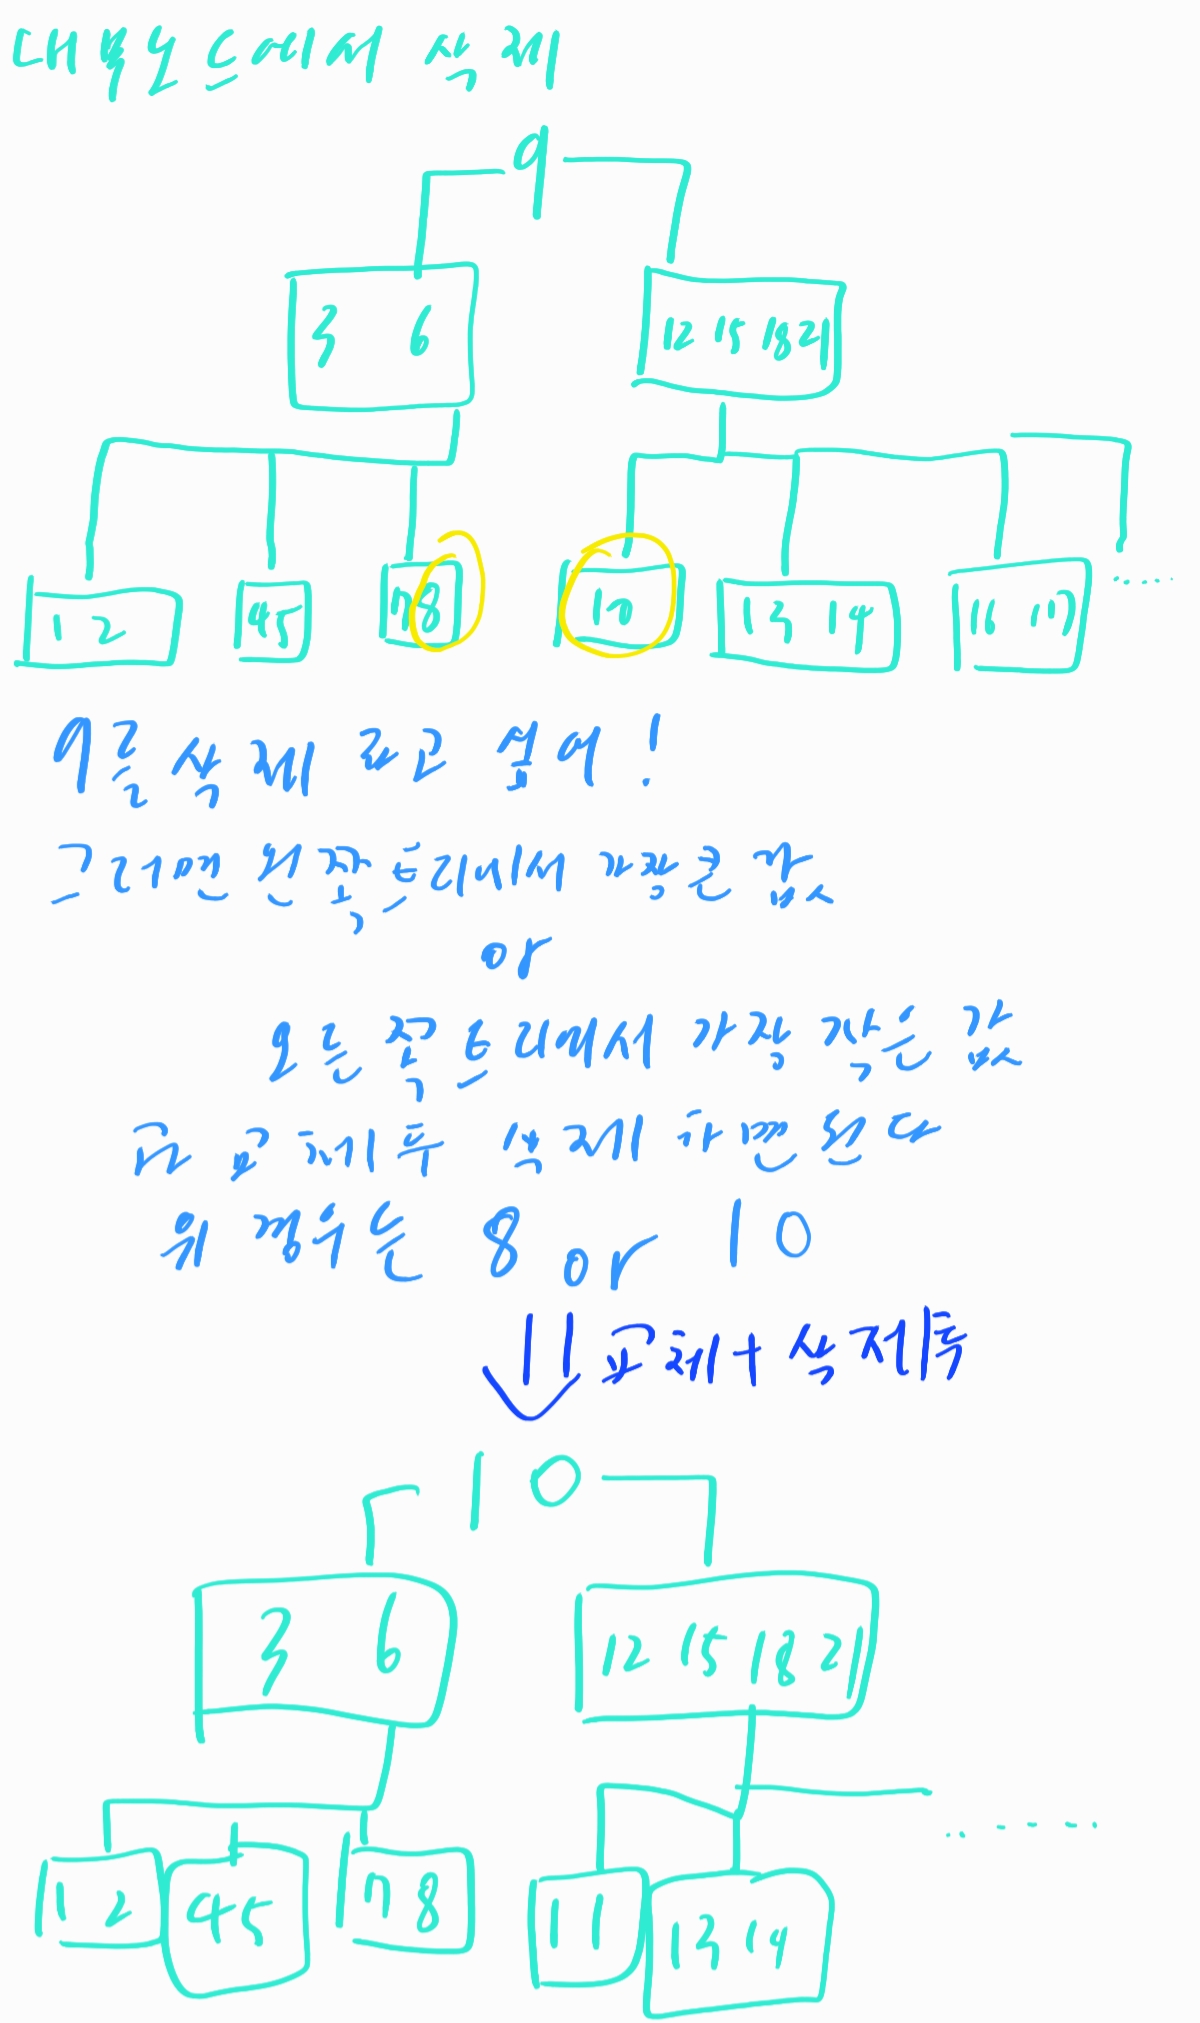 내부노드에서 삭제
9
3 6 12 15 18 21
1 2 4 5 7 8 10 13 14 16 17
9를 삭제 하고 싶어!
그러면 왼쪽 트리에서 가장 큰 값
or
오른쪽 트리에서 가장 작은 값
과 교체 후 삭제 하면 된다
위 경우는 8 or 10
교체+삭제후
10
3 6 12 15 18 21
1 2 4 5 7 8 11 13 14